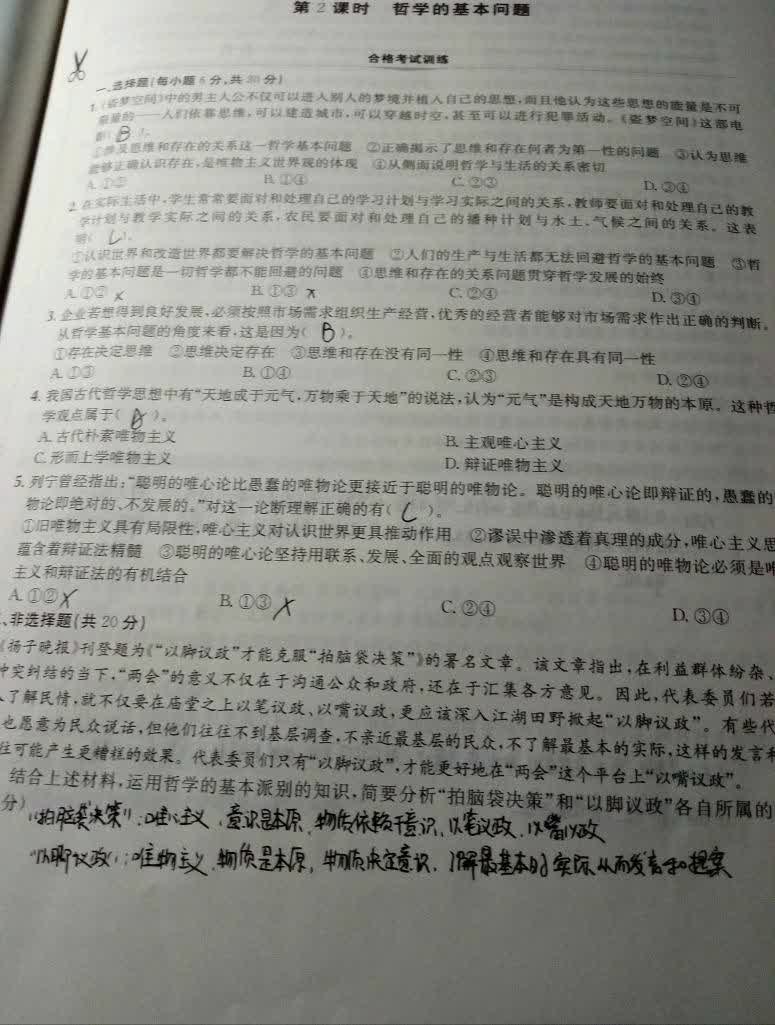 第2课时 哲学的基本问题
合格考试训练
一、选择题(每小题6分,共30分)
1.《盗梦空间》中的男主人公不仅可以进入别人的梦境并植入自己的思想,而且他认为这些思想的能量是不可
限量的——人们依靠思维,可以建造城市,可以穿越时空,甚至可以进行犯罪活动。《盗梦空间》这部电
影( B )。
①涉及思维和存在的关系这一哲学基本问题 ②正确揭示了思维和存在何者为第一性的问题 ③认为思维
能够正确认识存在,是唯物主义世界观的体现 ④从侧面说明哲学与生活的关系密切
A.①② B.①④ C.②③ D.③④
2.在实际生活中,学生常常要面对和处理自己的学习计划与学习实际之间的关系,教师要面对和处理自己的教
学计划与教学实际之间的关系,农民要面对和处理自己的播种计划与水土、气候之间的关系。这表
明( C )。
①认识世界和改造世界都要解决哲学的基本问题 ②人们的生产与生活都无法回避哲学的基本问题 ③哲
学的基本问题是一切哲学都不能回避的问题 ④思维和存在的关系问题贯穿哲学发展的始终
A.①② x B.①③ x C.②④ D.③④
3.企业若想得到良好发展,必须按照市场需求组织生产经营,优秀的经营者能够对市场需求作出正确的判断。
从哲学基本问题的角度来看,这是因为( B )。
①存在决定思维 ②思维决定存在 ③思维和存在没有同一性 ④思维和存在具有同一性
A.①③ B.①④ C.②③ D.②④
4.我国古代哲学思想中有“天地成于元气,万物乘于天地”的说法,认为“元气”是构成天地万物的本原。这种哲
学观点属于( )。
A.古代朴素唯物主义 B.主观唯心主义
C.形而上学唯物主义 D.辩证唯物主义
5.列宁曾经指出:“聪明的唯心论比愚蠢的唯物论更接近于聪明的唯物论。聪明的唯心论即辩证的,愚蠢的
物论即绝对的、不发展的。”对这一论断理解正确的有( C )。
①旧唯物主义具有局限性,唯心主义对认识世界更具推动作用 ②谬误中渗透着真理的成分,唯心主义思
蕴含着辩证法精髓 ③聪明的唯心论坚持用联系、发展、全面的观点观察世界 ④聪明的唯物论必须是唯
主义和辩证法的有机结合
A.①② X B.①③ X C.②④ D.③④
、非选择题(共20分)
《扬子晚报》刊登题为《“以脚议政”才能克服“拍脑袋决策”》的署名文章。该文章指出,在利益群体纷杂、
冲突纠结的当下,“两会”的意义不仅在于沟通公众和政府,还在于汇集各方意见。因此,代表委员们若
了解民情,就不仅要在庙堂之上以笔议政、以嘴议政,更应该深入江湖田野掀起“以脚议政”。有些代
也愿意为民众说话,但他们往往不到基层调查,不亲近最基层的民众,不了解最基本的实际,这样的发言和
往可能产生更糟糕的效果。代表委员们只有“以脚议政”,才能更好地在“两会”这个平台上“以嘴议政”。
结合上述材料,运用哲学的基本派别的知识,简要分析“拍脑袋决策”和“以脚议政”各自所属的
分)
“拍脑袋决策”:唯心主义,意识是本原,物质依赖于意识,以笔议政、以嘴议政
“以脚议政”:唯物主义,物质是本原,物质决定意识,了解最基本的实际从而发言和提案